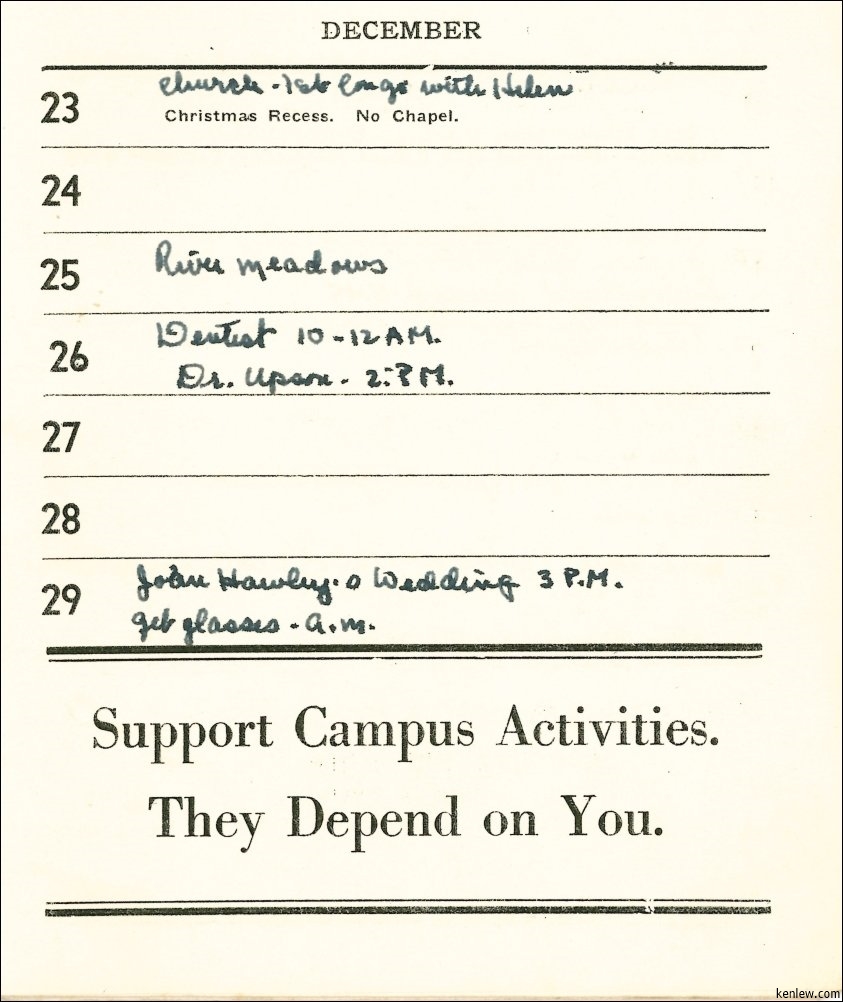 DECEMBER
23 Church - 1st Congo with Helen
Christmas Recess. No Chapel.
24
25 River meadows
26 Dentist 10-12 A.M.
Dr. Upson - 2: P.M.
27
28
29 Wedding 3 P.M.
get glasses - a.m.
Support Campus Activities.
They Depend on You.
kenlew.com